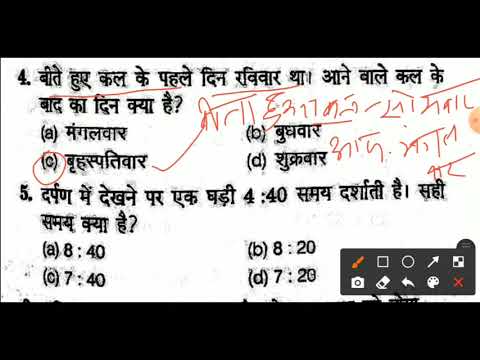 4. बीते हुए कल के पहले दिन रविवार था। आने वाले कल के
बाद का दिन क्या है?
बीता हुआ कल - सोमवार
(a) मंगलवार (b) बुधवार
आज - मंगल
वार
(c) बृहस्पतिवार (d) शुक्रवार
5. दर्पण में देखने पर एक घड़ी 4 :40 समय दर्शाती है। सही
समय क्या है?
(a) 8 : 40 (b) 8 : 20
(c) 7 : 40 (d) 7 : 20